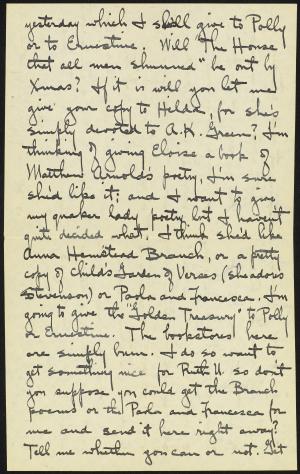 yesterday which I shall give to Polly
or to Ernestine. Will "The House
that all men shunned" be out by
Xmas? If it is will you let me
give your copy to Hilda, for she's
simply devoted to A.K. Green? I'm
thinking of giving Eloise a book of
Matthew Arnold's poetry, I'm sure
she'd like it; and I want to give
my quaker lady poetry but I haven't
quite decided what, I think she'd like
Anna Hempstead Branch, or a pretty
copy of Childs Garden of Verses (she adores
Stevenson) or Paola and Francesca. I'm
going to give the "Golden Treasury" to Polly
or Ernestine. The bookstores here
are simply bum. I do so want to
get something nice for Ruth U. so don't
you suppose you could get the Branch
poems or the Paolo and Francesca for
me and send it here right away?
Tell me whether you can or not. Get